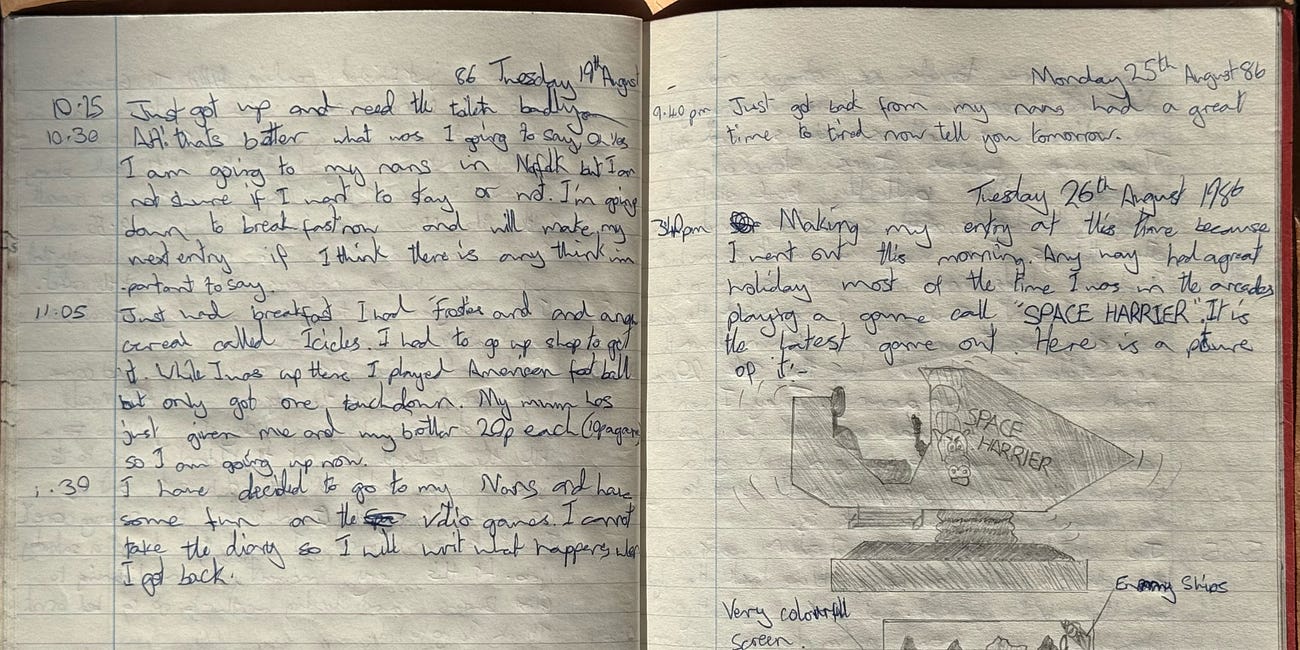 86 Tuesday 19th August
10.25 Just got up and need the toileh badly
10.30 Ah! thats better what was I going to say O yes
I am going to my nans in Norfolk but I am
not shure if I want to stay or not. I'm going
down to breakfast now and will make my
next entry if I think there is any think im
-portant to say.
11.05 Just had breakfast I had Frosties and and
cereal called Icicles. I had to go up shop to get
it. While I was up there I played Amereican football
but only got one touchdown. My mum has
just given me and my brother 20p each (10p a game
so I am going up now.
.30 I have decided to go to my Nans and have
some fun on the vidio games. I cannot
take the diary so I will writ what happens when
I get back.
Monday 25th August 86
9.40pm Just got back from my nans had a great
time to tired now tell you tomorrow.
Tuesday 26th August 1986
Making my entry at this time because
I went out this morning. Any way had a great
holiday most of the time I was in the arcades
playing a game call "SPACE HARRIER". It is
the latest game out. Here is a picture
op it:-
SPACE
HARRIER
Enemy Ships
Very colourfull
screen.